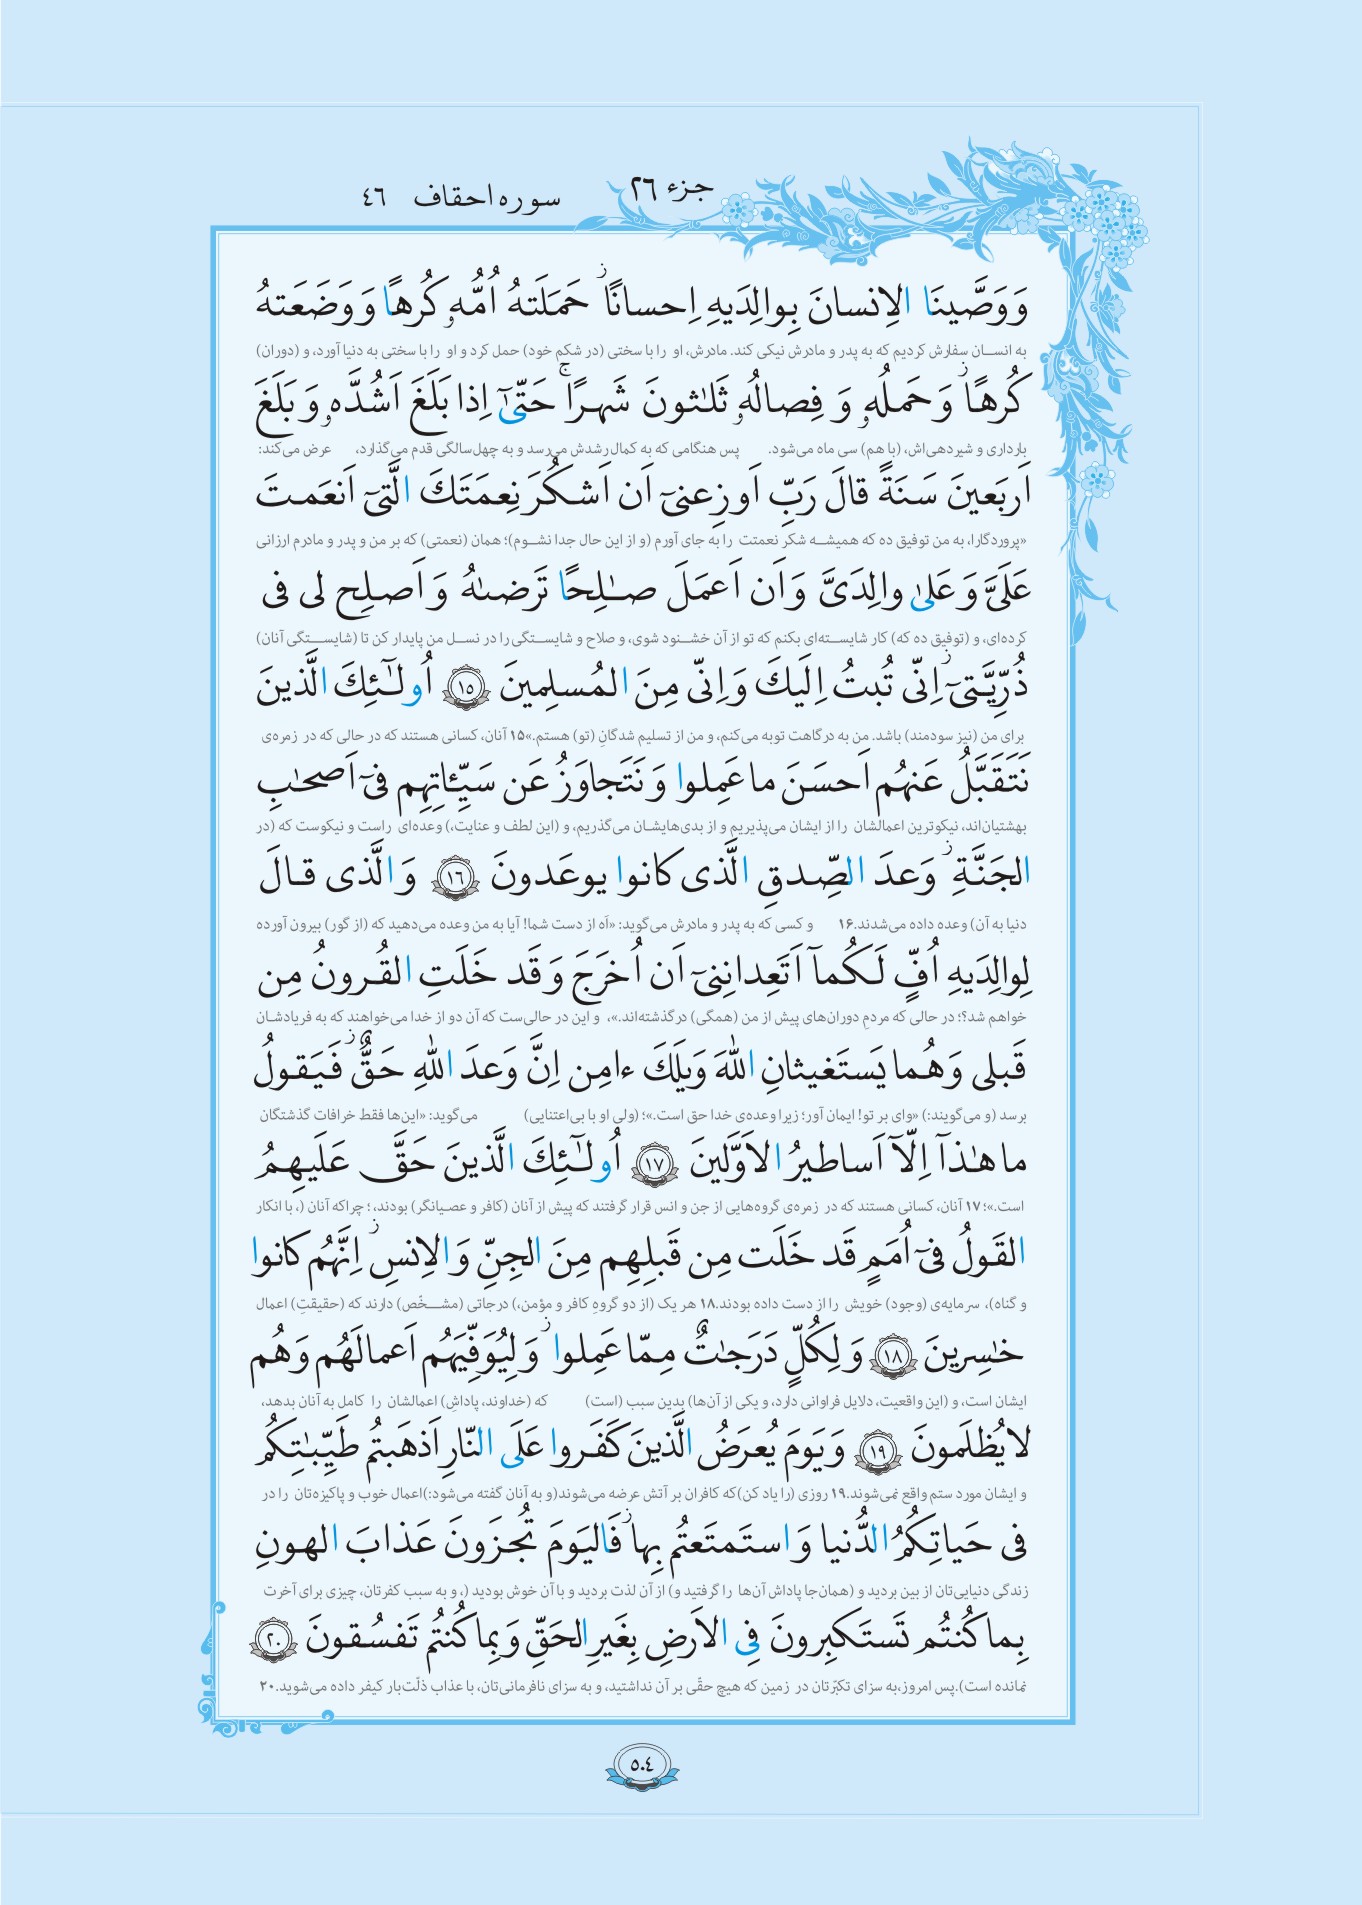 جزء ٢٦
سوره احقاف ٤٦
وَ وَصَّینَا الاِنسانَ بِوالِدَیهِ اِحسانًا ۖز حَمَلَتهُ اُمُّهو کُرهًا وَ وَضَعَتهُ
به انسان سفارش کردیم که به پدر و مادرش نیکی کند. مادرش، او را با سختی (در شکم خود) حمل کرد و او را با سختی به دنیا آورد، و (دوران)
کُرهًا ز وَ حَملُهو وَ فِصالُهو ثَلٰثونَ شَهرًا ج حَتّیٰٓ اِذا بَلَغَ اَشُدَّهو وَ بَلَغَ
بارداری و شیردهی‌اش، (با هم) سی ماه می‌شود. پس هنگامی که به کمال رشدش می‌رسد و به چهل‌سالگی قدم می‌گذارد، عرض می‌کند:
اَربَعینَ سَنَةً قالَ رَبِّ اَوزِعنیٓ اَن اَشکُرَ نِعمَتَكَ الَّتیٓ اَنعَمتَ
«پروردگارا، به من توفیق ده که همیشه شکر نعمتت را به جای آورم (و از این حال جدا نشوم)؛ همان (نعمتی) که بر من و پدر و مادرم ارزانی
عَلَیَّ وَ عَلیٰ والِدَیَّ وَ اَن اَعمَلَ صٰلِحًا تَرضىٰهُ وَ اَصلِح لی فی
کرده‌ای، و (توفیق ده که) کار شایسته‌ای بکنم که تو از آن خشنود شوی، و صلاح و شایستگی را در نسل من پایدار کن تا (شایستگی آنان)
ذُرِّیَّتیٓ ز اِنّی تُبتُ اِلَیكَ وَ اِنّی مِنَ المُسلِمینَ ١٥ اُولٰٓئِكَ الَّذینَ
برای من (نیز سودمند) باشد. من به درگاهت توبه می‌کنم، و من از تسلیم شدگان (تو) هستم.»١٥ آنان، کسانی هستند که در حالی که در زمره‌ی
نَتَقَبَّلُ عَنهُم اَحسَنَ ما عَمِلوا وَ نَتَجاوَزُ عَن سَیِّـٔاتِهِم فیٓ اَصحٰبِ
بهشتیان‌اند، نیکوترین اعمالشان را از ایشان می‌پذیریم و از بدی‌هایشان می‌گذریم، و (این لطف و عنایت،) وعده‌ای راست و نیکوست که (در
الجَنَّةِ ز وَعدَ الصِّدقِ الَّذی کانوا یوعَدونَ ١٦ وَ الَّذی قالَ
دنیا به آن) وعده داده می‌شدند.١٦ و کسی که به پدر و مادرش می‌گوید: «اَه از دست شما! آیا به من وعده می‌دهید که (از گور) بیرون آورده
لِوالِدَیهِ اُفٍّ لَکُمآ اَتَعِدانِنیٓ اَن اُخرَجَ وَ قَد خَلَتِ القُرونُ مِن
خواهم شد؟؛ در حالی که مردمِ دوران‌های پیش از من (همگی) درگذشته‌اند.»، و این در حالی‌ست که آن دو از خدا می‌خواهند که به فریادشان
قَبلی وَ هُما یَستَغیثانِ اللّٰهَ وَیلَكَ ءامِن اِنَّ وَعدَ اللّٰهِ حَقٌّ ز فَیَقولُ
برسد (و می‌گویند:) «وای بر تو! ایمان آور؛ زیرا وعده‌ی خدا حق است.»؛ (ولی او با بی‌اعتنایی) می‌گوید: «این‌ها فقط خرافات گذشتگان
ما هٰذآ اِلّآ اَساطیرُ الاَوَّلینَ ١٧ اُولٰٓئِكَ الَّذینَ حَقَّ عَلَیهِمُ
است.»؛١٧ آنان، کسانی هستند که در زمره‌ی گروه‌هایی از جن و انس قرار گرفتند که پیش از آنان (کافر و عصیانگر) بودند، ؛ چراکه آنان (، با انکار
القَولُ فیٓ اُمَمٍ قَد خَلَت مِن قَبلِهِم مِنَ الجِنِّ وَ الاِنسِ ز اِنَّهُم کانوا
و گناه)، سرمایه‌ی (وجود) خویش را از دست داده بودند.١٨ هر یک (از دو گروهِ کافر و مؤمن،) درجاتی (مشخّص) دارند که (حقیقتِ) اعمال
خٰسِرینَ ١٨ وَ لِکُلٍّ دَرَجٰتٌ مِمّا عَمِلوا ز وَ لِیُوَفِّیَهُم اَعمالَهُم وَ هُم
ایشان است، و (این واقعیت، دلایل فراوانی دارد، و یکی از آن‌ها) بدین سبب (است) که (خداوند، پاداشِ) اعمالشان را کامل به آنان بدهد،
لا یُظلَمونَ ١٩ وَ یَومَ یُعرَضُ الَّذینَ کَفَروا عَلَی النّارِ اَذهَبتُم طَیِّبٰتِکُم
و ایشان مورد ستم واقع نمی‌شوند.١٩ روزی (را یاد کن) که کافران بر آتش عرضه می‌شوند (و به آنان گفته می‌شود:) اعمال خوب و پاکیزه‌تان را در
فی حَیاتِکُمُ الدُّنیا وَ استَمتَعتُم بِها ز فَالیَومَ تُجزَونَ عَذابَ الهونِ
زندگی دنیایی‌تان از بین بردید و (همان‌جا پاداش آن‌ها را گرفتید و) از آن لذت بردید و با آن خوش بودید (، و به سبب کفرتان، چیزی برای آخرت
بِما کُنتُم تَستَکبِرونَ فِی الاَرضِ بِغَیرِ الحَقِّ وَ بِما کُنتُم تَفسُقونَ ٢٠
نمانده است). پس امروز، به سزای تکبّرتان در زمین که هیچ حقّی بر آن نداشتید، و به سزای نافرمانی‌تان، با عذاب ذلّت‌بار کیفر داده می‌شوید.٢٠
٥٠٤